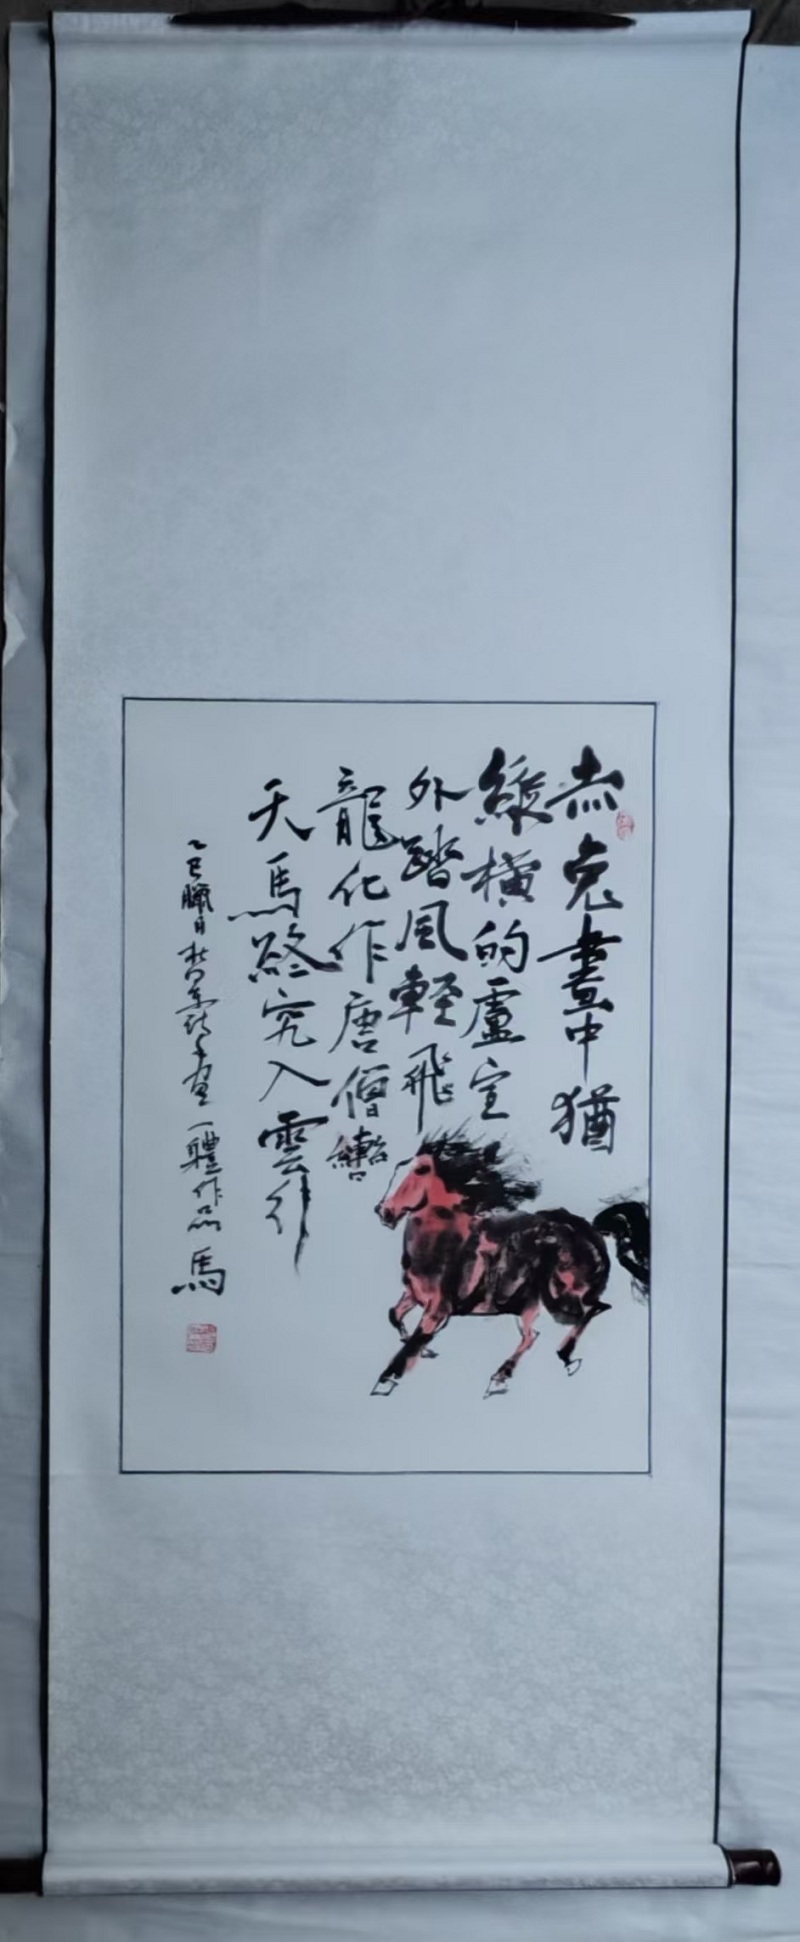 赤兔畫中猶
縱橫的盧室
外踏風輕飛
龍化作唐僧
天馬終究入雲行
乙巳臘日 一體作品 馬